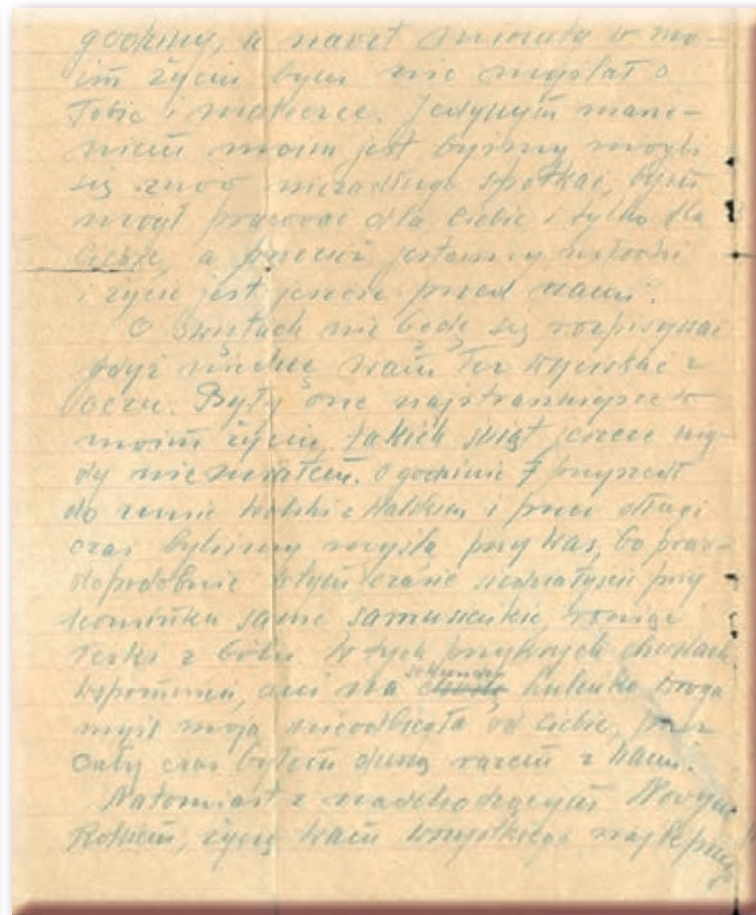 godziny, a nawet minuta w mo-
im życiu bym nie myślał o
Tobie i mateczce. Jedynym marze-
niem moim jest byśmy mogli
się znów niezadługo spotkać, bym
mógł pracować dla Ciebie i tylko dla
Ciebie, a przecież jesteśmy młodzi
i życie jest jeszcze przed nami.
O świętach nie będę się rozpisywać
gdyż niechcę wam łez wyciskać z
oczu. Były one najstraszniejsze w
moim życiu, takich świąt jeszcze nig-
dy nie miałem. O godzinie 7 przyszedł
do mnie Wolski z Walskim i przez długi
czas byliśmy myślą przy Was, bo praw-
dopodobnie w tym czasie siedziałyście przy
kominku same samusieńkie, roniąc
łezki z bólu w tych przykrych chwilach
wspomnień, ani na chwilę sekundę Lulenko droga
myśl moja nieodbiegła od Ciebie, przez
cały czas byłem duszą razem z Wami.
Natomiast z nadchodzącym Nowym
Rokiem, życzę Wam wszystkiego najlepszego